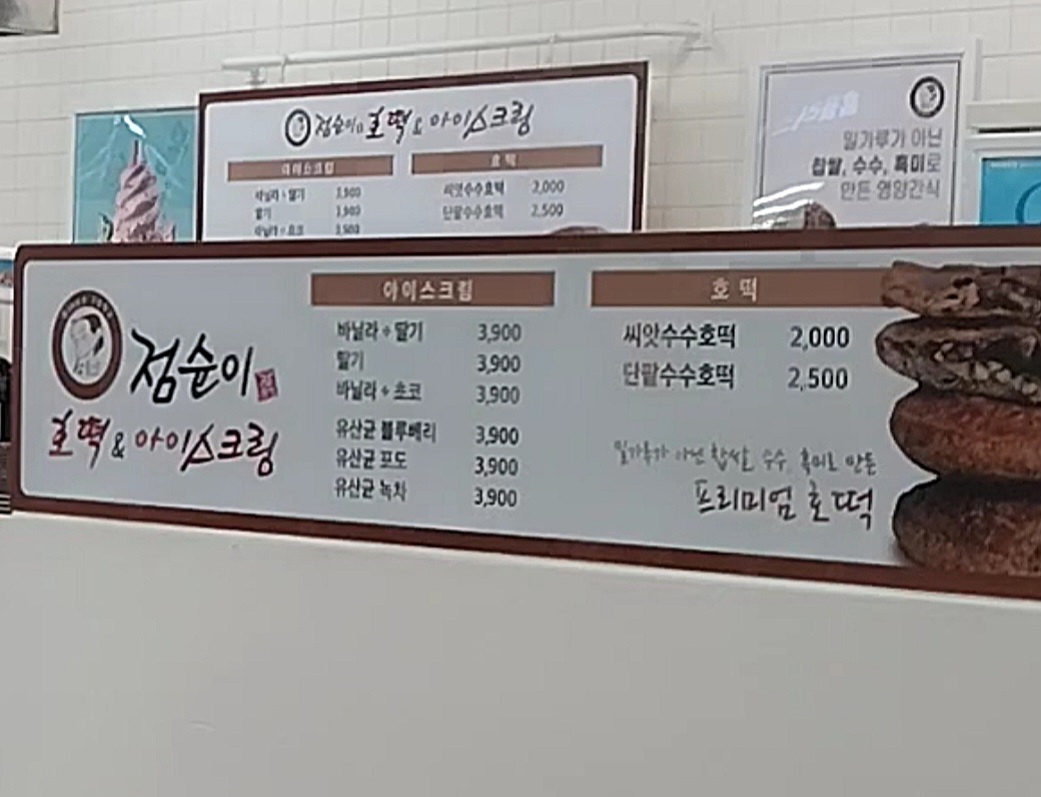 점순이 호떡 & 아이스크림
아이스크림
호떡
바닐라+딸기 3,900
딸기 3,900
바닐라+초코 3,900
씨앗수수호떡 2,000
단팥수수호떡 2,500
밀가루가 아닌
찹쌀, 수수, 흑미로
만든 영양간식
점순이
호떡 & 아이스크림
아이스크림
바닐라+딸기 3,900
딸기 3,900
바닐라+초코 3,900
유산균 블루베리 3,900
유산균 포도 3,900
유산균 녹차 3,900
호떡
씨앗수수호떡 2,000
단팥수수호떡 2,500
밀가루가 아닌 찹쌀, 수수, 흑미로 만든
프리미엄 호떡